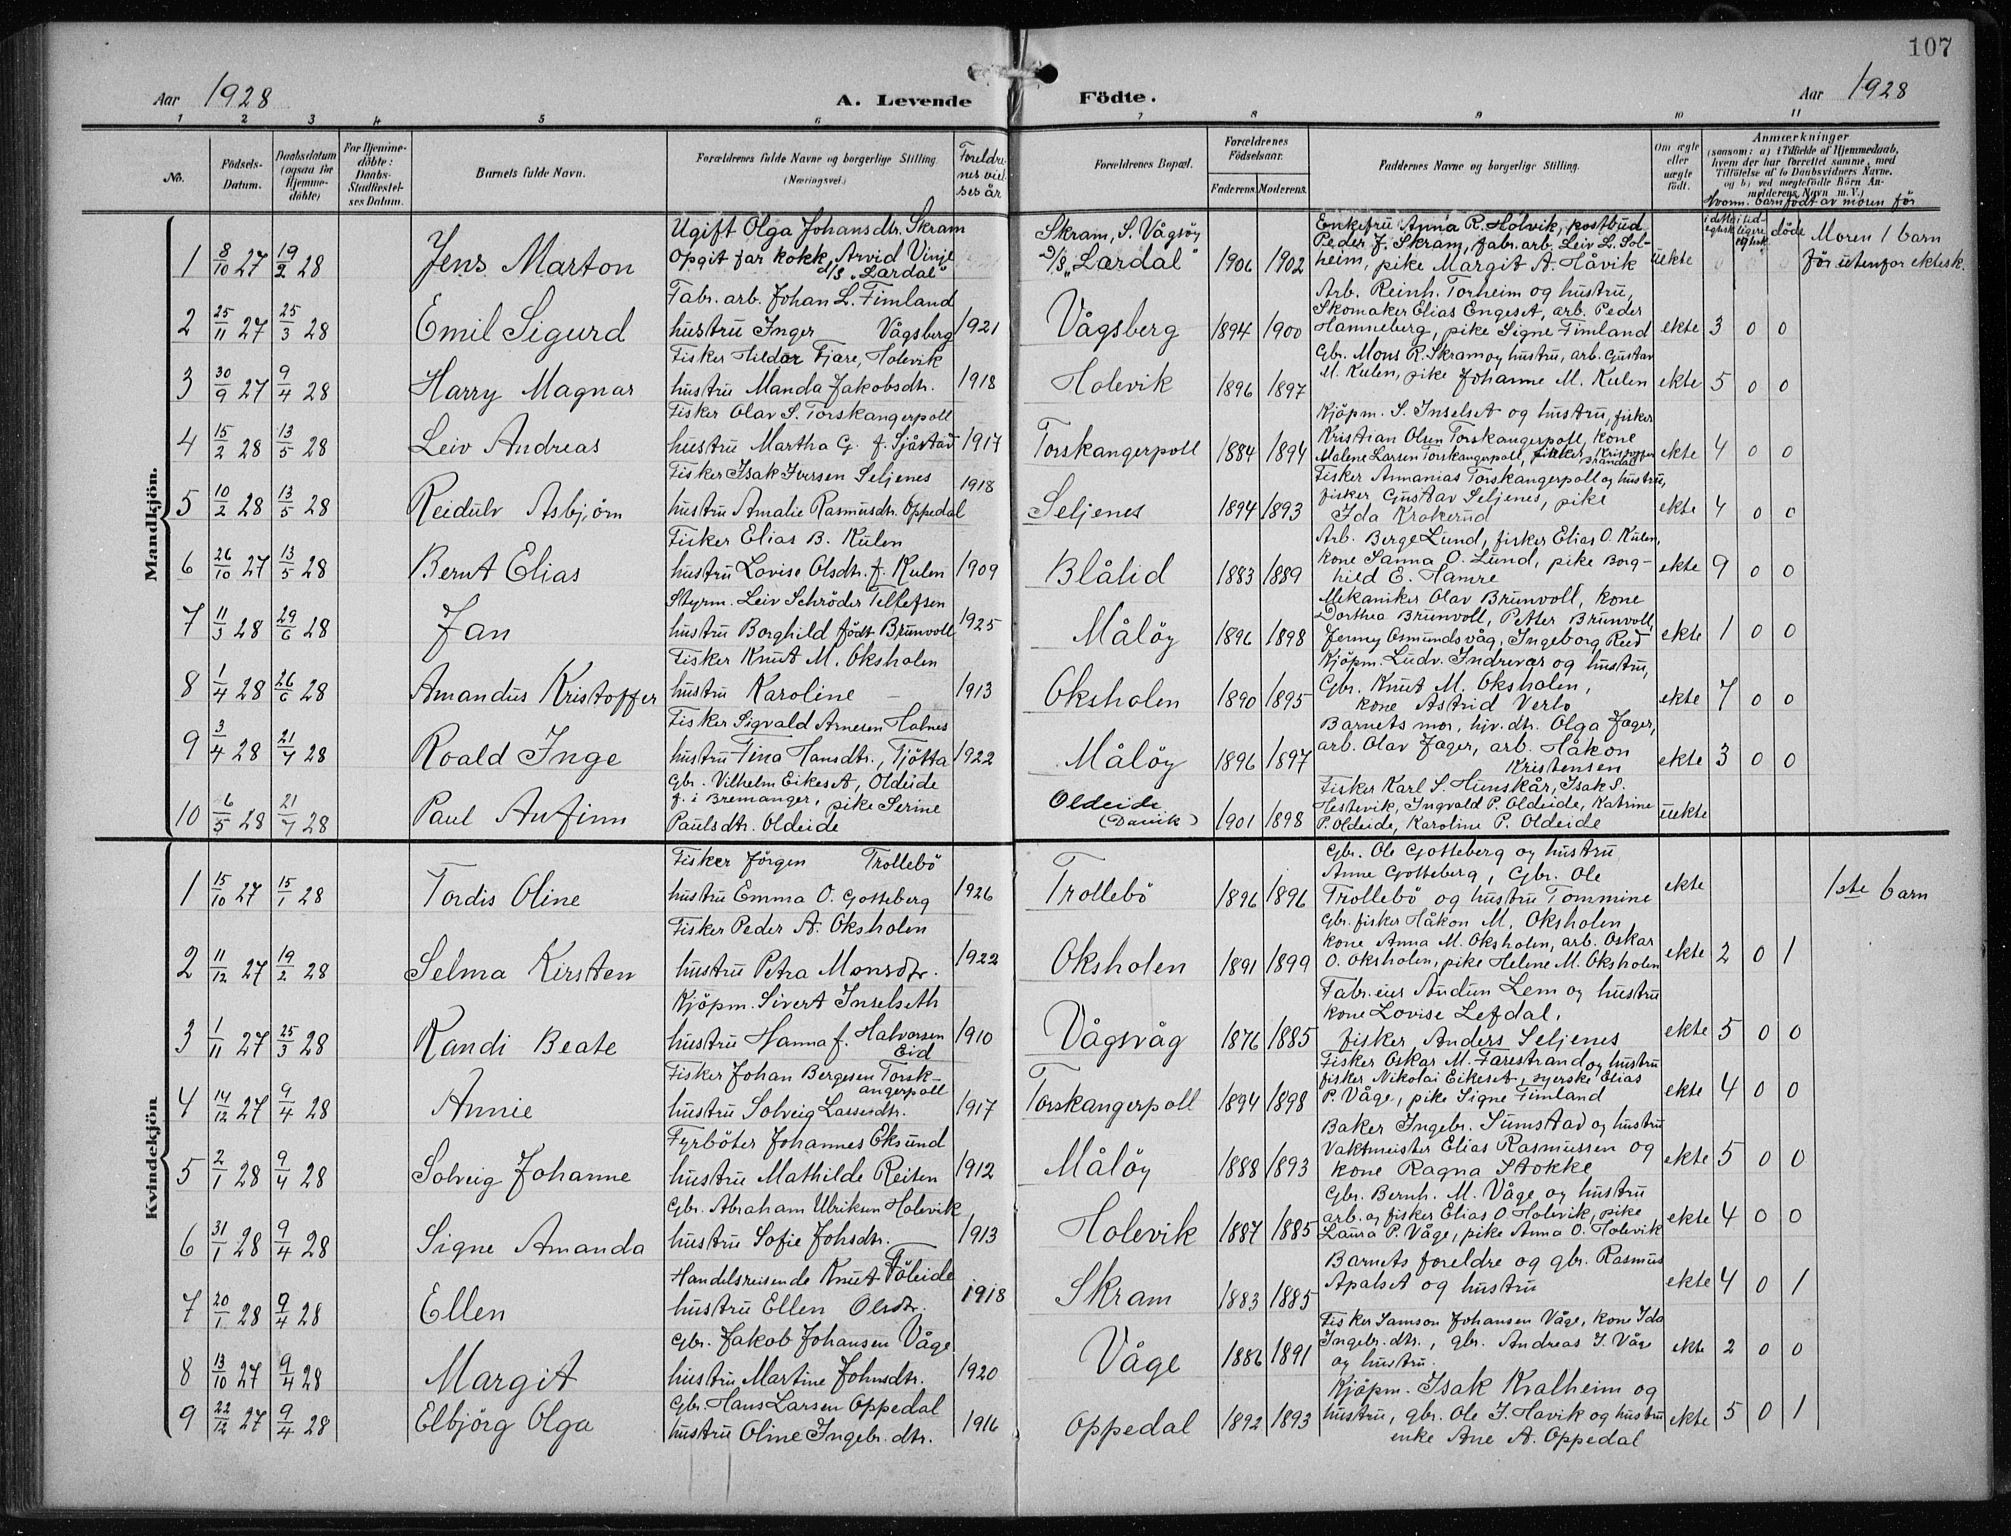 107
Aar 1928
A. Levende
Födte.
Aar 1928
1 2 3 4 5 6 7 8 9 10 11
No.
Födsels-Datum.
Daabsdatum (ogsaa for Hjemmedöbte)
For Hjemmedöbte: Daabs-Stadfæstelses Datum.
Barnets fulde Navn.
Forældrenes fulde Navne og borgerlige Stilling.
(Næringsvei.)
Foreldrenes vielses år
Forældrenes Bopæl.
Forældrenes Födselsaar.
Faderens. Moderens.
Faddernes Navne og borgerlige Stilling.
Om ægte eller uægte födt.
Anmærkninger
(saasom: a) i Tilfælde af Hjemmedaab, hvem der har forrettet samme, med Tilföielse af to Daabsvidners Navne, og b) ved uægtefödte Börn Anmelderens Navn m. V.)
Hvorm. barn født av moren før
i dette egtesk. i tidligere egtesk. döde
Mandkjön.
1 8/10 27 19/2 28 Jens Marton
Ugift Olga Johansdtr. Skram
Opgit far kokk, Arvid Vinje
d/s "Lærdal"
Skram, S. Vågsöy
D/S "Lærdal" 1906 1902
Enkefru Anna R. Holvik, postbud
Peder J. Skram, fabr. arb. Leiv L. Solheim, pike Margit A. Håvik
uekte
Moren 1 barn
för utenfor ektesk.
2 25/11 27 25/3 28 Emil Sigurd
Fabr. arb. Johan L. Fimland
hustru Inger Vågsberg 1921
Vågsberg 1894 1900
Arb. Reinh. Torheim og hustru,
Skomaker Elias Engeset, arb. Peder
Hamneberg, pike Signe Fimland
ekte 3 0 0
3 30/9 27 9/4 28 Harry Magnar
Fisker Hildor Fjære, Holevik
hustru Manda Jakobsdtr. 1918
Holevik 1896 1897
Gbr. Mons R. Skram og hustru, arb. Gustav
M. Kulen, pike Johanne M. Kulen
ekte 5 0 0
4 15/2 28 13/5 28 Leiv Andreas
Fisker Olav S. Torskangerpoll
hustru Martha G. f. Sjåstad 1917
Torskangerpoll 1884 1894
Kjöpm. S. Inselset og hustru, fisker
Kristian Olsen Torskangerpoll, kone
Malene Larsen Torskangerpoll, fisker Kristoffer Brandal
ekte 4 0 0
5 10/2 28 13/5 28 Reidulv Asbjörn
Fisker Isak Iversen Seljenes
hustru Amalie Rasmusdtr. Oppedal 1918
Seljenes 1894 1893
Fisker Annanias Torskangerpoll og hustru,
fisker Gustav Seljenes, pike
Ida Krakerud
ekte 4 0 0
6 26/10 27 13/5 28 Bernt Elias
Fisker Elias B. Kulen
hustru Lovise Olsdtr. f. Kulen 1909
Blålid 1883 1889
Arb. Berge Lund, fisker Elias O. Kulen,
kone Sanna O. Lund, pike Borghild E. Hamre
ekte 9 0 0
7 11/3 28 29/6 28 Jan
Styrm. Leiv Schröder Tellefsen
hustru Borghild födt Brunvoll 1925
Målöy 1896 1898
Mekaniker Olav Brunvoll, kone
Dorthea Brunvoll, Petter Brunvoll,
Jenny Osmundsvåg, Ingeborg Reed
ekte 1 0 0
8 1/4 28 26/6 28 Amandus Kristoffer
Fisker Knut M. Oksholen
hustru Karoline — 1913
Oksholen 1890 1895
Kjöpm. Ludv. Indrevær og hustru,
Gbr. Knut M. Oksholen,
kone Astrid Verlo
ekte 7 0 0
9 3/4 28 21/7 28 Roald Inge
Fisker Sigvald Arnesen Holnes
hustru Fina Hansdtr., Tjötta 1922
Målöy 1896 1897
Barnets mor, hjv. dtr. Olga Jager,
arb. Olav Jager, arb. Håkon
Kristensen
ekte 3 0 0
10 6/5 28 21/7 28 Paul Anfinn
Gbr. Vilhelm Eikeset, Oldeide
f. i Bremanger, pike Serine
Paulsdtr. Oldeide
Oldeide
(Davik) 1901 1898
Fisker Karl S. Hunskår, Isak S.
Hestevik, Ingvald P. Oldeide, Katrine
P. Oldeide, Karoline P. Oldeide
uekte
Kvindekjön
1 15/10 27 15/1 28 Tordis Oline
Fisker Jörgen Trollebö
hustru Emma O. Gotteberg 1926
Trollebö 1896 1896
Gbr. Ole Gotteberg og hustru
Anne Gotteberg, Gbr. Ole
Trollebö og hustru Tommine
ekte
1ste barn
2 11/12 27 19/2 28 Selma Kirsten
Fisker Peder A. Oksholen
hustru Petra Monsdtr. 1922
Oksholen 1891 1899
Gbr. fisker Håkon M. Oksholen
kone Anna M. Oksholen, arb. Oskar
O. Oksholen, pike Helene M. Oksholen
ekte 2 0 1
3 1/11 27 25/3 28 Randi Beate
Kjöpm. Sivert Inselseth
hustru Hanna f. Halvorsen
Eid 1910
Vågsvåg 1876 1885
Fabr. eier Audun Lem og hustru
kone Lovise Lefdal,
fisker Anders Seljenes
ekte 5 0 0
4 14/12 27 9/4 28 Annie
Fisker Johan Bergesen Torskangerpoll
hustru Solveig Lassesdtr. 1917
Torskangerpoll 1894 1898
Fisker Oskar M. Farestrand og hustru
fisker Nikolai Eikeset, syerske Elias
P. Våge, pike Signe Fimland
ekte 4 0 0
5 2/1 28 9/4 28 Solveig Johanne
Fyrböter Johannes Eksund
hustru Mathilde Reiten 1912
Målöy 1888 1893
Baker Ingebr. Sumstad og hustru
Vaktmeister Elias Rasmussen og
kone Ragna Stokke
ekte 5 0 0
6 31/1 28 9/4 28 Signe Amanda
Gbr. Abraham Ulriksen Holevik
hustru Sofie Johsdtr. 1913
Holevik 1887 1885
Gbr. Bernh. M. Våge og hustru
arb. og fisker Elias O. Holevik, pike
Laura P. Våge, pike Anna O. Holevik
ekte 4 0 0
7 20/1 28 9/4 28 Ellen
Handelsreisende Knut Föleide
hustru Ellen Olsdtr. 1918
Skram 1883 1885
Barnets foreldre og gbr. Rasmus
Apalset og hustru
ekte 4 0 1
8 13/10 27 9/4 28 Margit
Gbr. Jakob Johansen Våge
hustru Martine Johnsdtr. 1920
Våge 1886 1891
Fisker Samson Johansen Våge, kone Ida
Ingebr. dtr., gbr. Andreas J. Våge
og hustru.
ekte 2 0 0
9 22/12 27 9/4 28 Elbjörg Olga
Gbr. Hans Larsen Oppedal
hustru Oline Ingebr. dtr. 1916
Oppedal 1892 1893
Kjöpm. Isak Kvalheim og
hustru, gbr. Ole J. Havik og hustru
enke Ane A. Oppedal
ekte 5 0 1